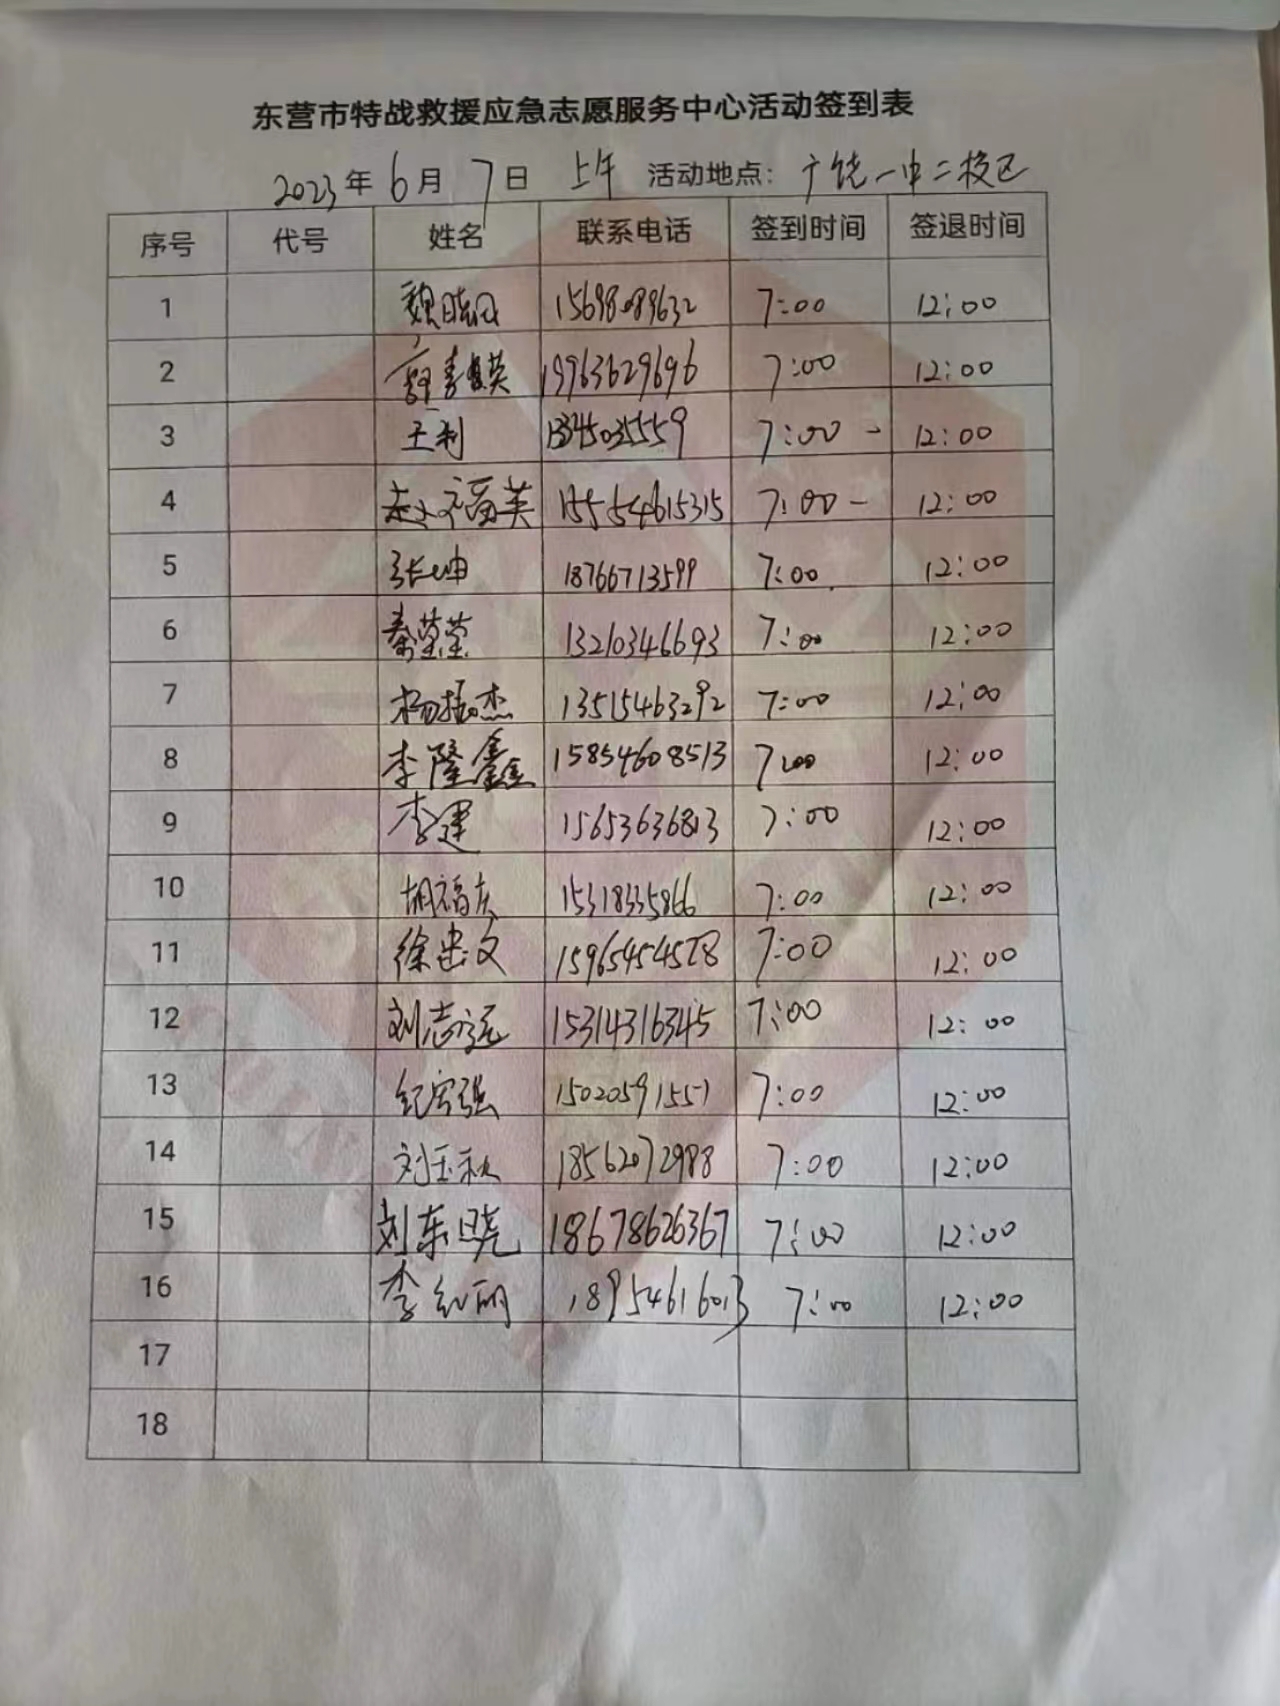 东营市特战救援应急志愿服务中心活动签到表
2023年6月7日 上午 活动地点：广饶一中二校区
序号 代号 姓名 联系电话 签到时间 签退时间
1 魏晓 15698089632 7:00 12:00
2 19963629696 7:00 12:00
3 王利 13345035559 7:00 - 12:00
4 赵福英 15554615315 7:00 - 12:00
5 张坤 18766713599 7:00 12:00
6 秦莹莹 13210346693 7:00 12:00
7 杨振杰 13515463292 7:00 12:00
8 李隆鑫 15854608513 7:00 12:00
9 李建 15653636813 7:00 12:00
10 胡福友 15318335866 7:00 12:00
11 徐忠文 15965454528 7:00 12:00
12 刘志远 15314316345 7:00 12:00
13 纪宝强 15020591551 7:00 12:00
14 刘玉秋 18562072988 7:00 12:00
15 刘东晓 18678626367 7:00 12:00
16 李红丽 18954616013 7:00 12:00
17
18